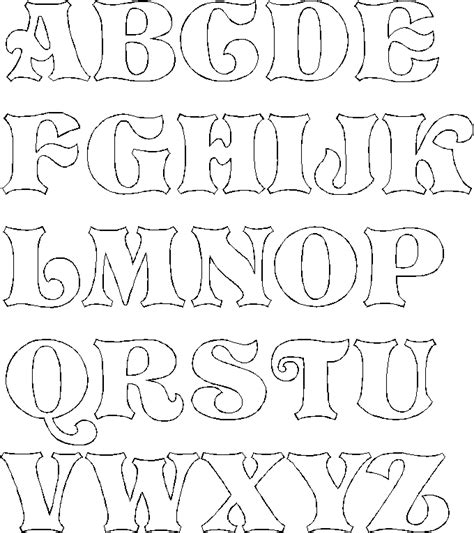 ABCDE
FGHIJK
LMNOP
QRSTU
VWXYZ